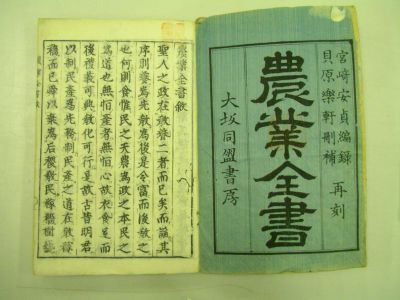 宮崎安貞編録
貝原樂軒刪補
再刻
農業全書
大坂同盟書房
農業全書叙
聖人之政在教養二者而已矣而論其
序則養爲先教爲後是令富而後教之
也何則食惟民之天農爲政之本民之
爲道也無恒產者無恒心故衣食足而
後禮義可興教化可行是故古昔明君
以制民產爲先務制民產之道在教稼
穡而已舜以棄爲后稷教民稼穡樹藝